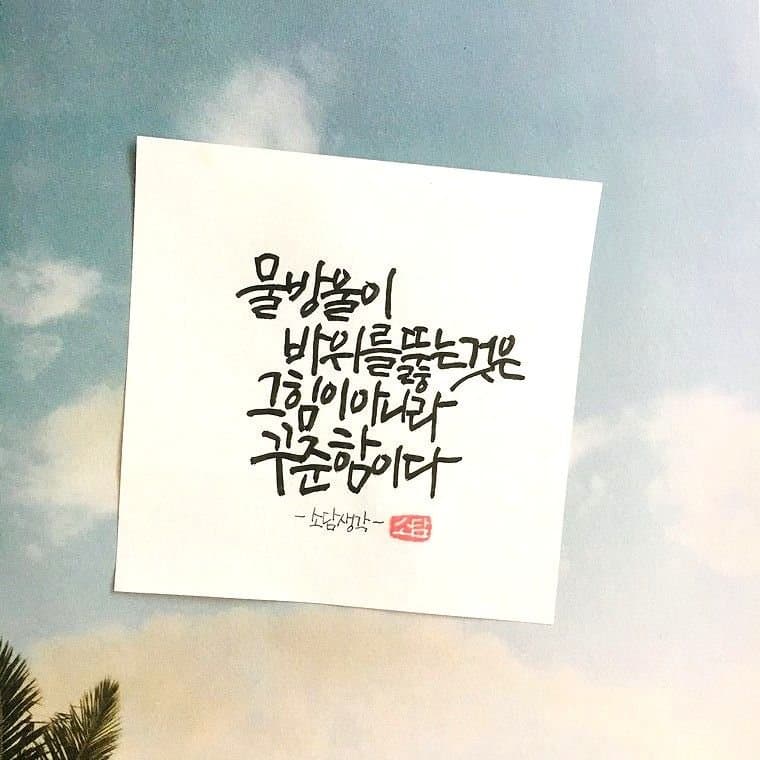 물방울이
바위를 뚫는 것은
그 힘이 아니라
꾸준함이다
- 소담생각 -
소담